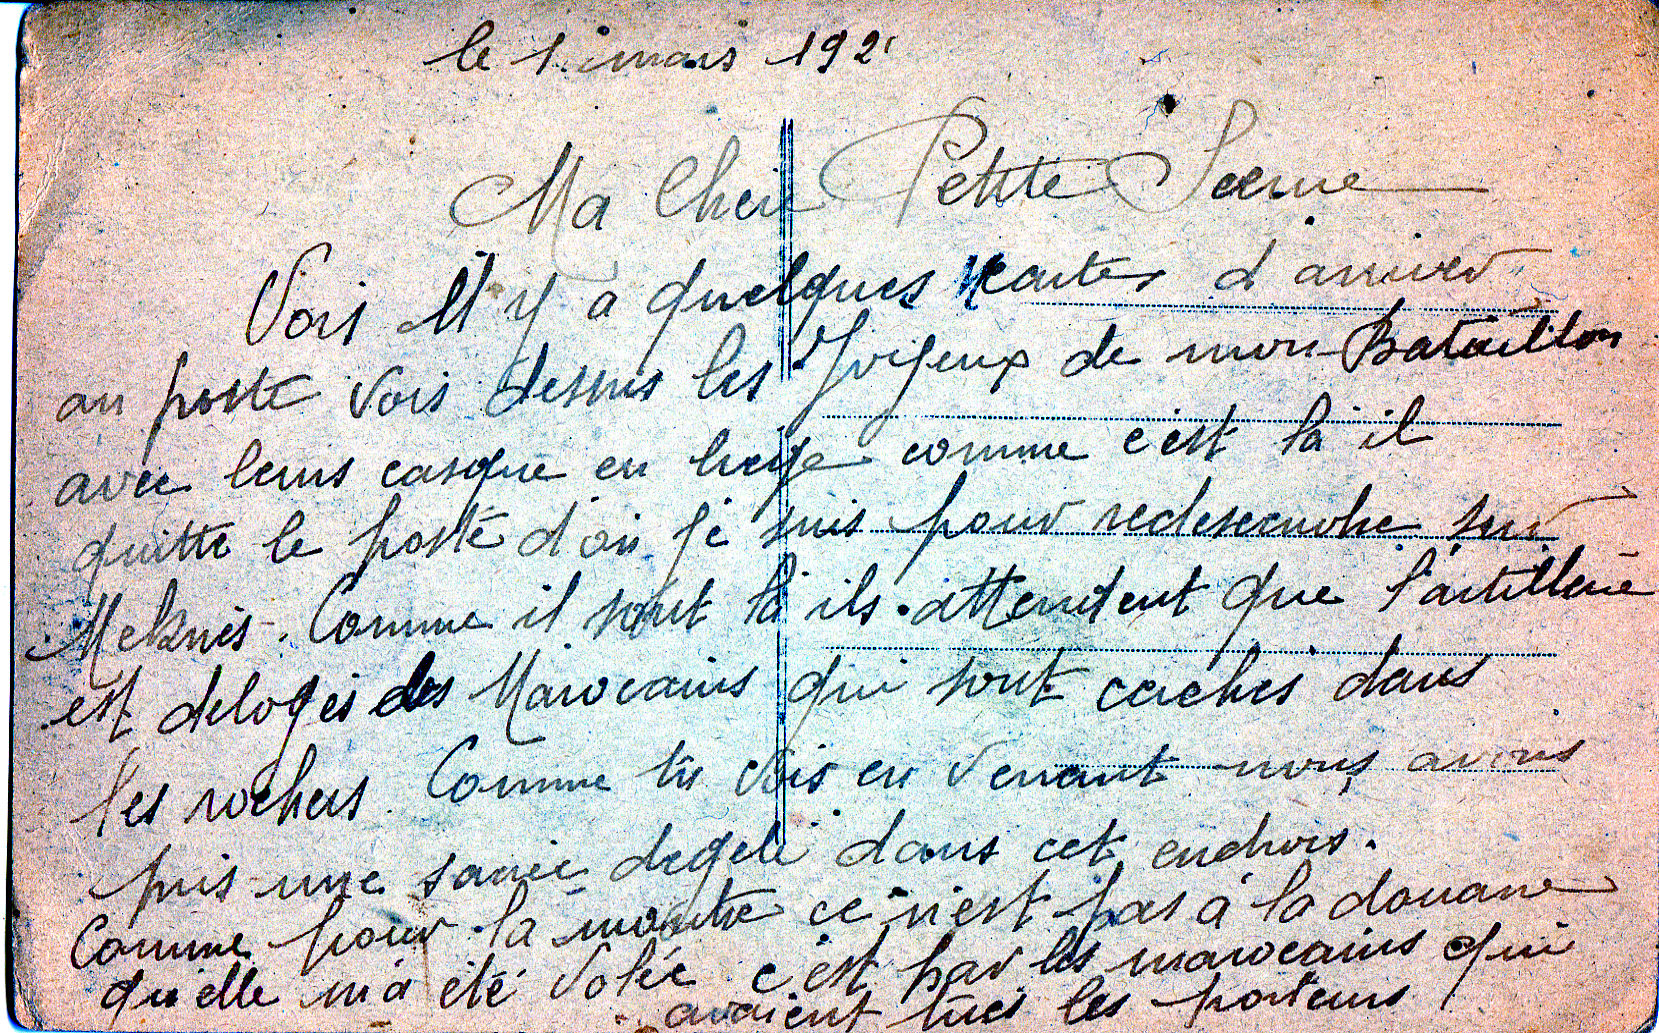 le 1 mars 192
Ma Cher Petite Soeur
Vois Il y a quelques cartes d'arriver
au poste Vois dessus les Joyeux de mon Bataillon
avec leurs casque en liege comme c'est là il
quitte le poste d'ou je suis pour redesecendre sur
Meknes. Comme il sont là ils attendent que l'artillerie
est delogés des Marocains qui sont cachés dans
les rochers. Comme tu vois en venant nous avons
pris une sacrée degelé dans cet endrois.
Comme pour la montre ce n'est pas à la douane
qu'elle m'a été volée c'est par les marocains qui
avaient tués les porteurs